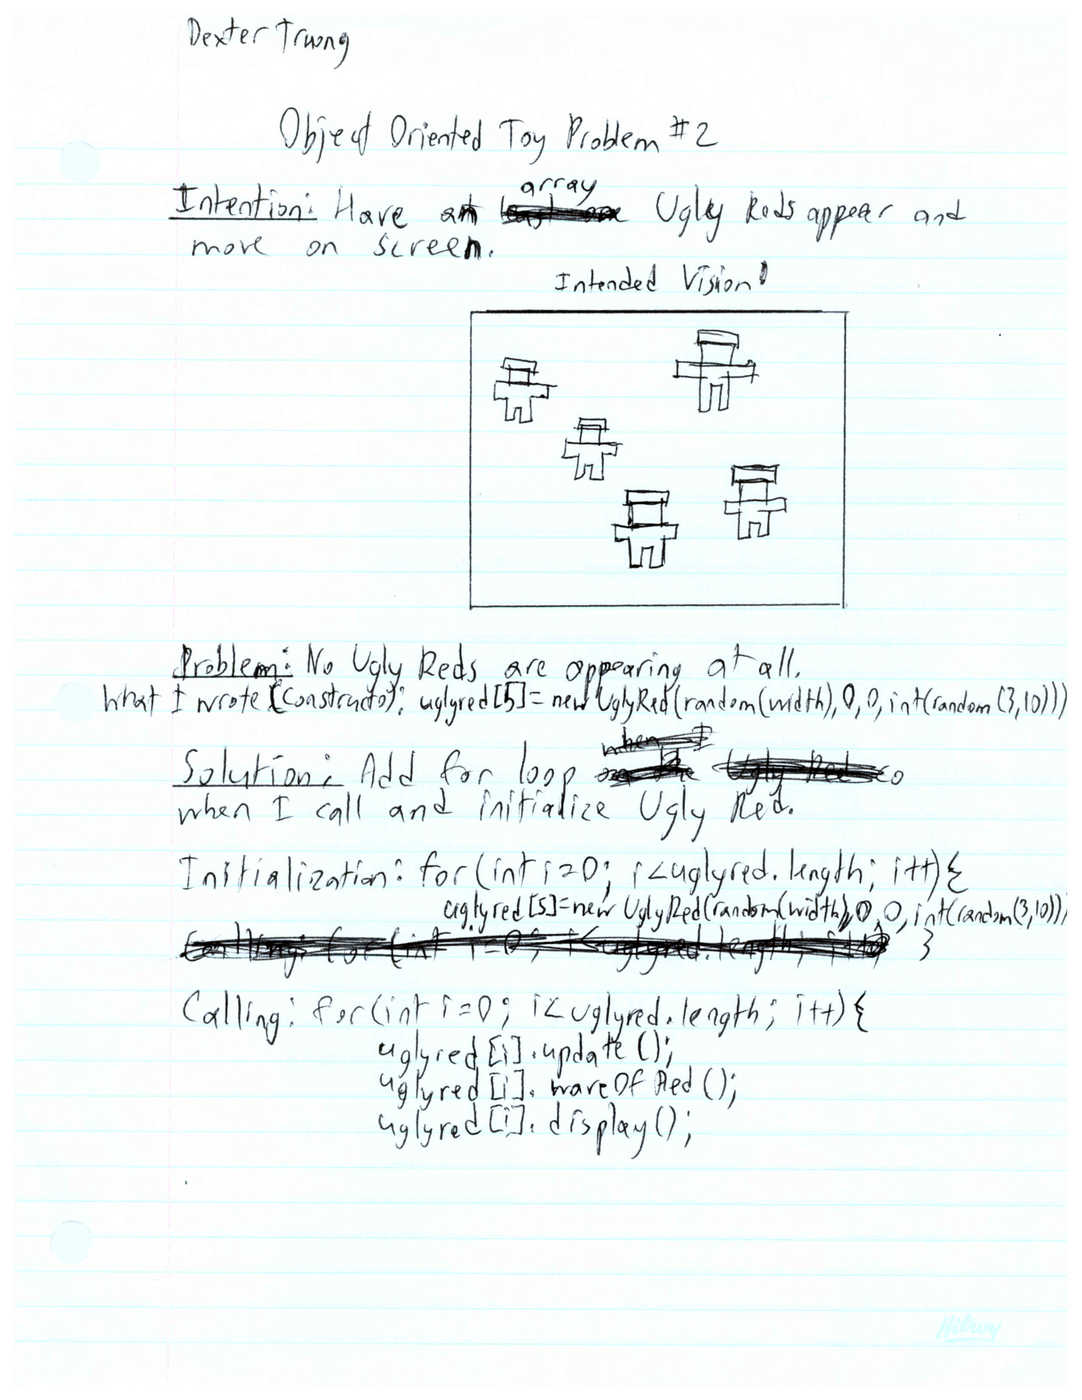 Dexter Truong
Object Oriented Toy Problem #2
array
Intention: Have an Ugly Reds appear and
move on screen.
Intended Vision!
Problem: No Ugly Reds are appearing at all.
What I wrote (Constructo): uglyred[5]= new UglyRed(random(width),0,0,int(random(3,10)))
when I
Solution: Add for loop
when I call and initialize Ugly Red.
Initialization: for(int i=0; i<uglyred.length; i++){
uglyred[5]=new UglyRed(random(width),0,0,int(random(3,10)))
Calling: for(int i=0; i<uglyred.length; i++) }
Calling: for(int i=0; i<uglyred.length; i++){
uglyred[i].update();
uglyred[i].waveOfRed();
uglyred[i].display();
Hilroy